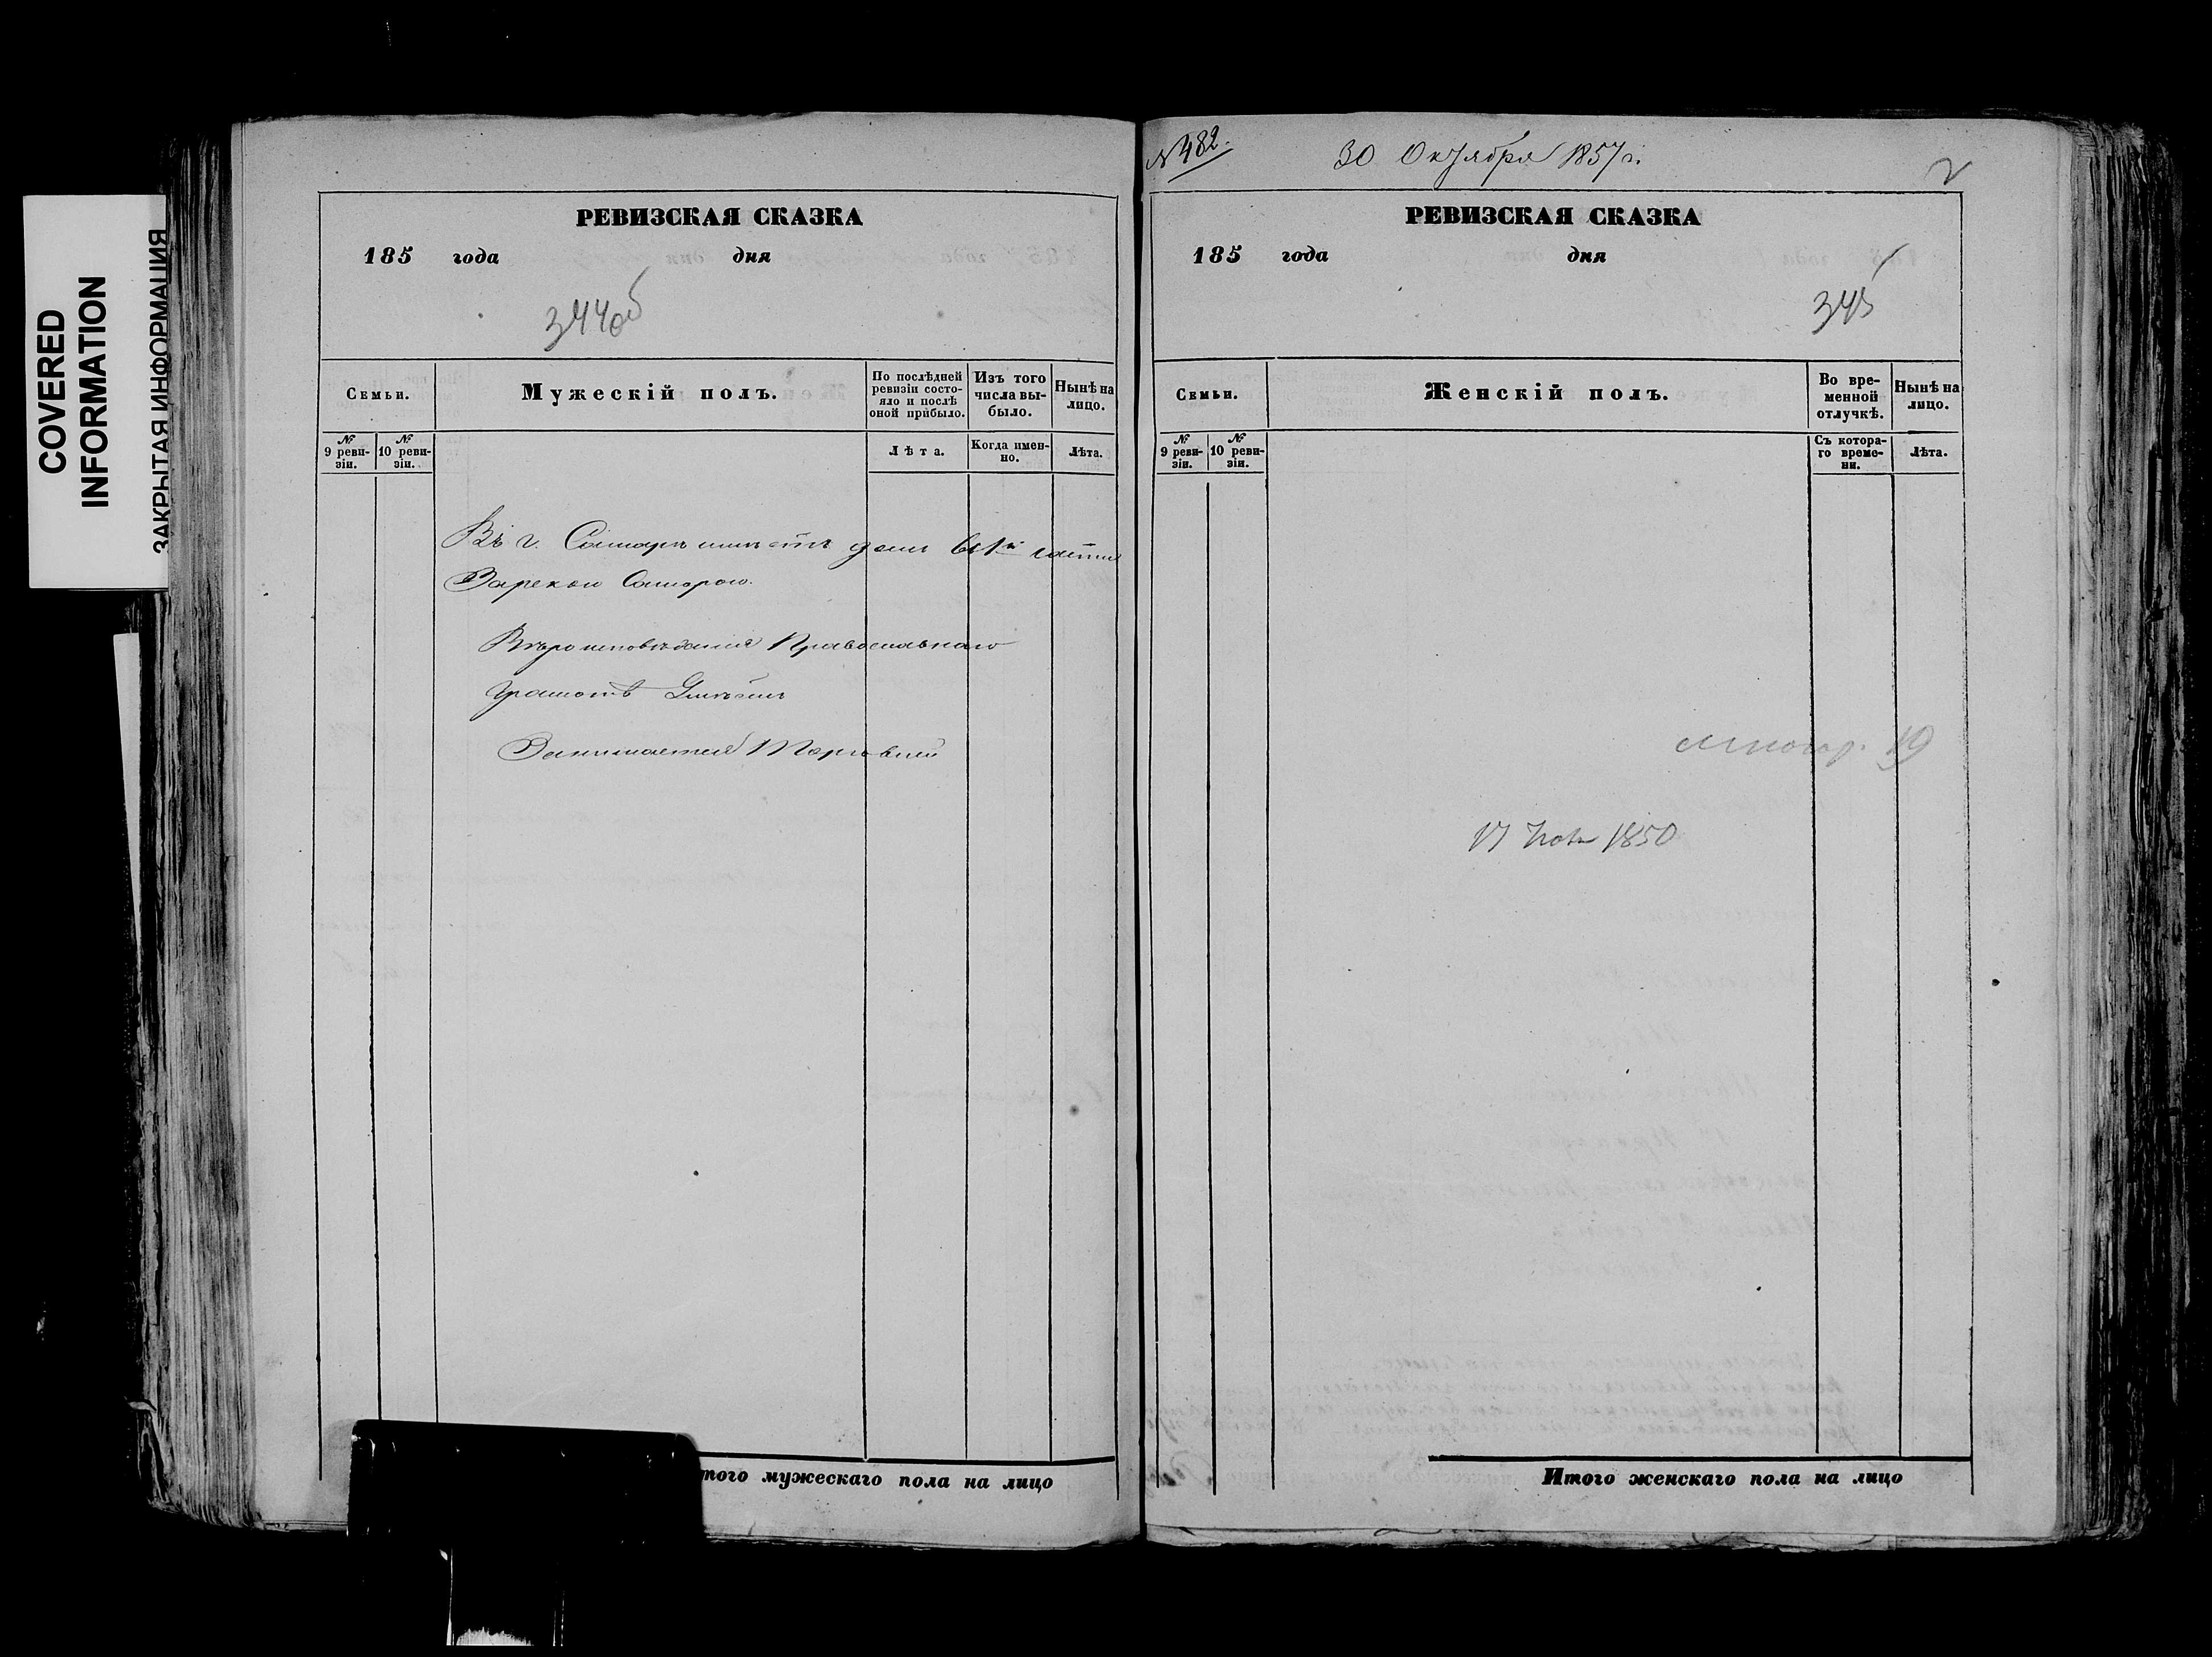 COVERED
INFORMATION
ЗАКРЫТАЯ ИНФОРМАЦИЯ
РЕВИЗСКАЯ СКАЗКА
185 года дня
344об
Семьи.
Мужескій полъ.
По послѣдней ревизіи состо-
яло и послѣ
оной прибыло.
Изъ того
числа вы-
было.
Нынѣ на
лицо.
№
9 реви-
зіи.
№
10 реви-
зіи.
Лѣта.
Когда имен-
но.
Лѣта.
Въ г. Самарѣ имѣетъ домъ въ 1й части
За рекою Самарою.
Вѣроисповѣданія Православнаго
Грамотѣ Умѣетъ
Занимается Торговлей
того мужескаго пола на лицо
№ 482.
30 Октября 1857 г.
РЕВИЗСКАЯ СКАЗКА
185 года дня
345
Семьи.
Женскій полъ.
Во вре-
менной
отлучкѣ.
Нынѣ на
лицо.
№
9 реви-
зіи.
№
10 реви-
зіи.
Съ котора-
го време-
ни.
Лѣта.
19
17 1850
Итого женскаго пола на лицо